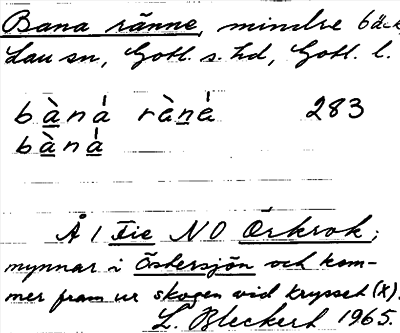 Bana ränne, mindre bäck,
Lau sn, Gotl. s. hd, Gotl. l.
bàná ràne̍ 283
bàná
Å 1 Fie NO Örkrok;
mynnar i Östersjön och kom-
mer fram ur skogen vid krysset (x).
L. Bleckert 1965.